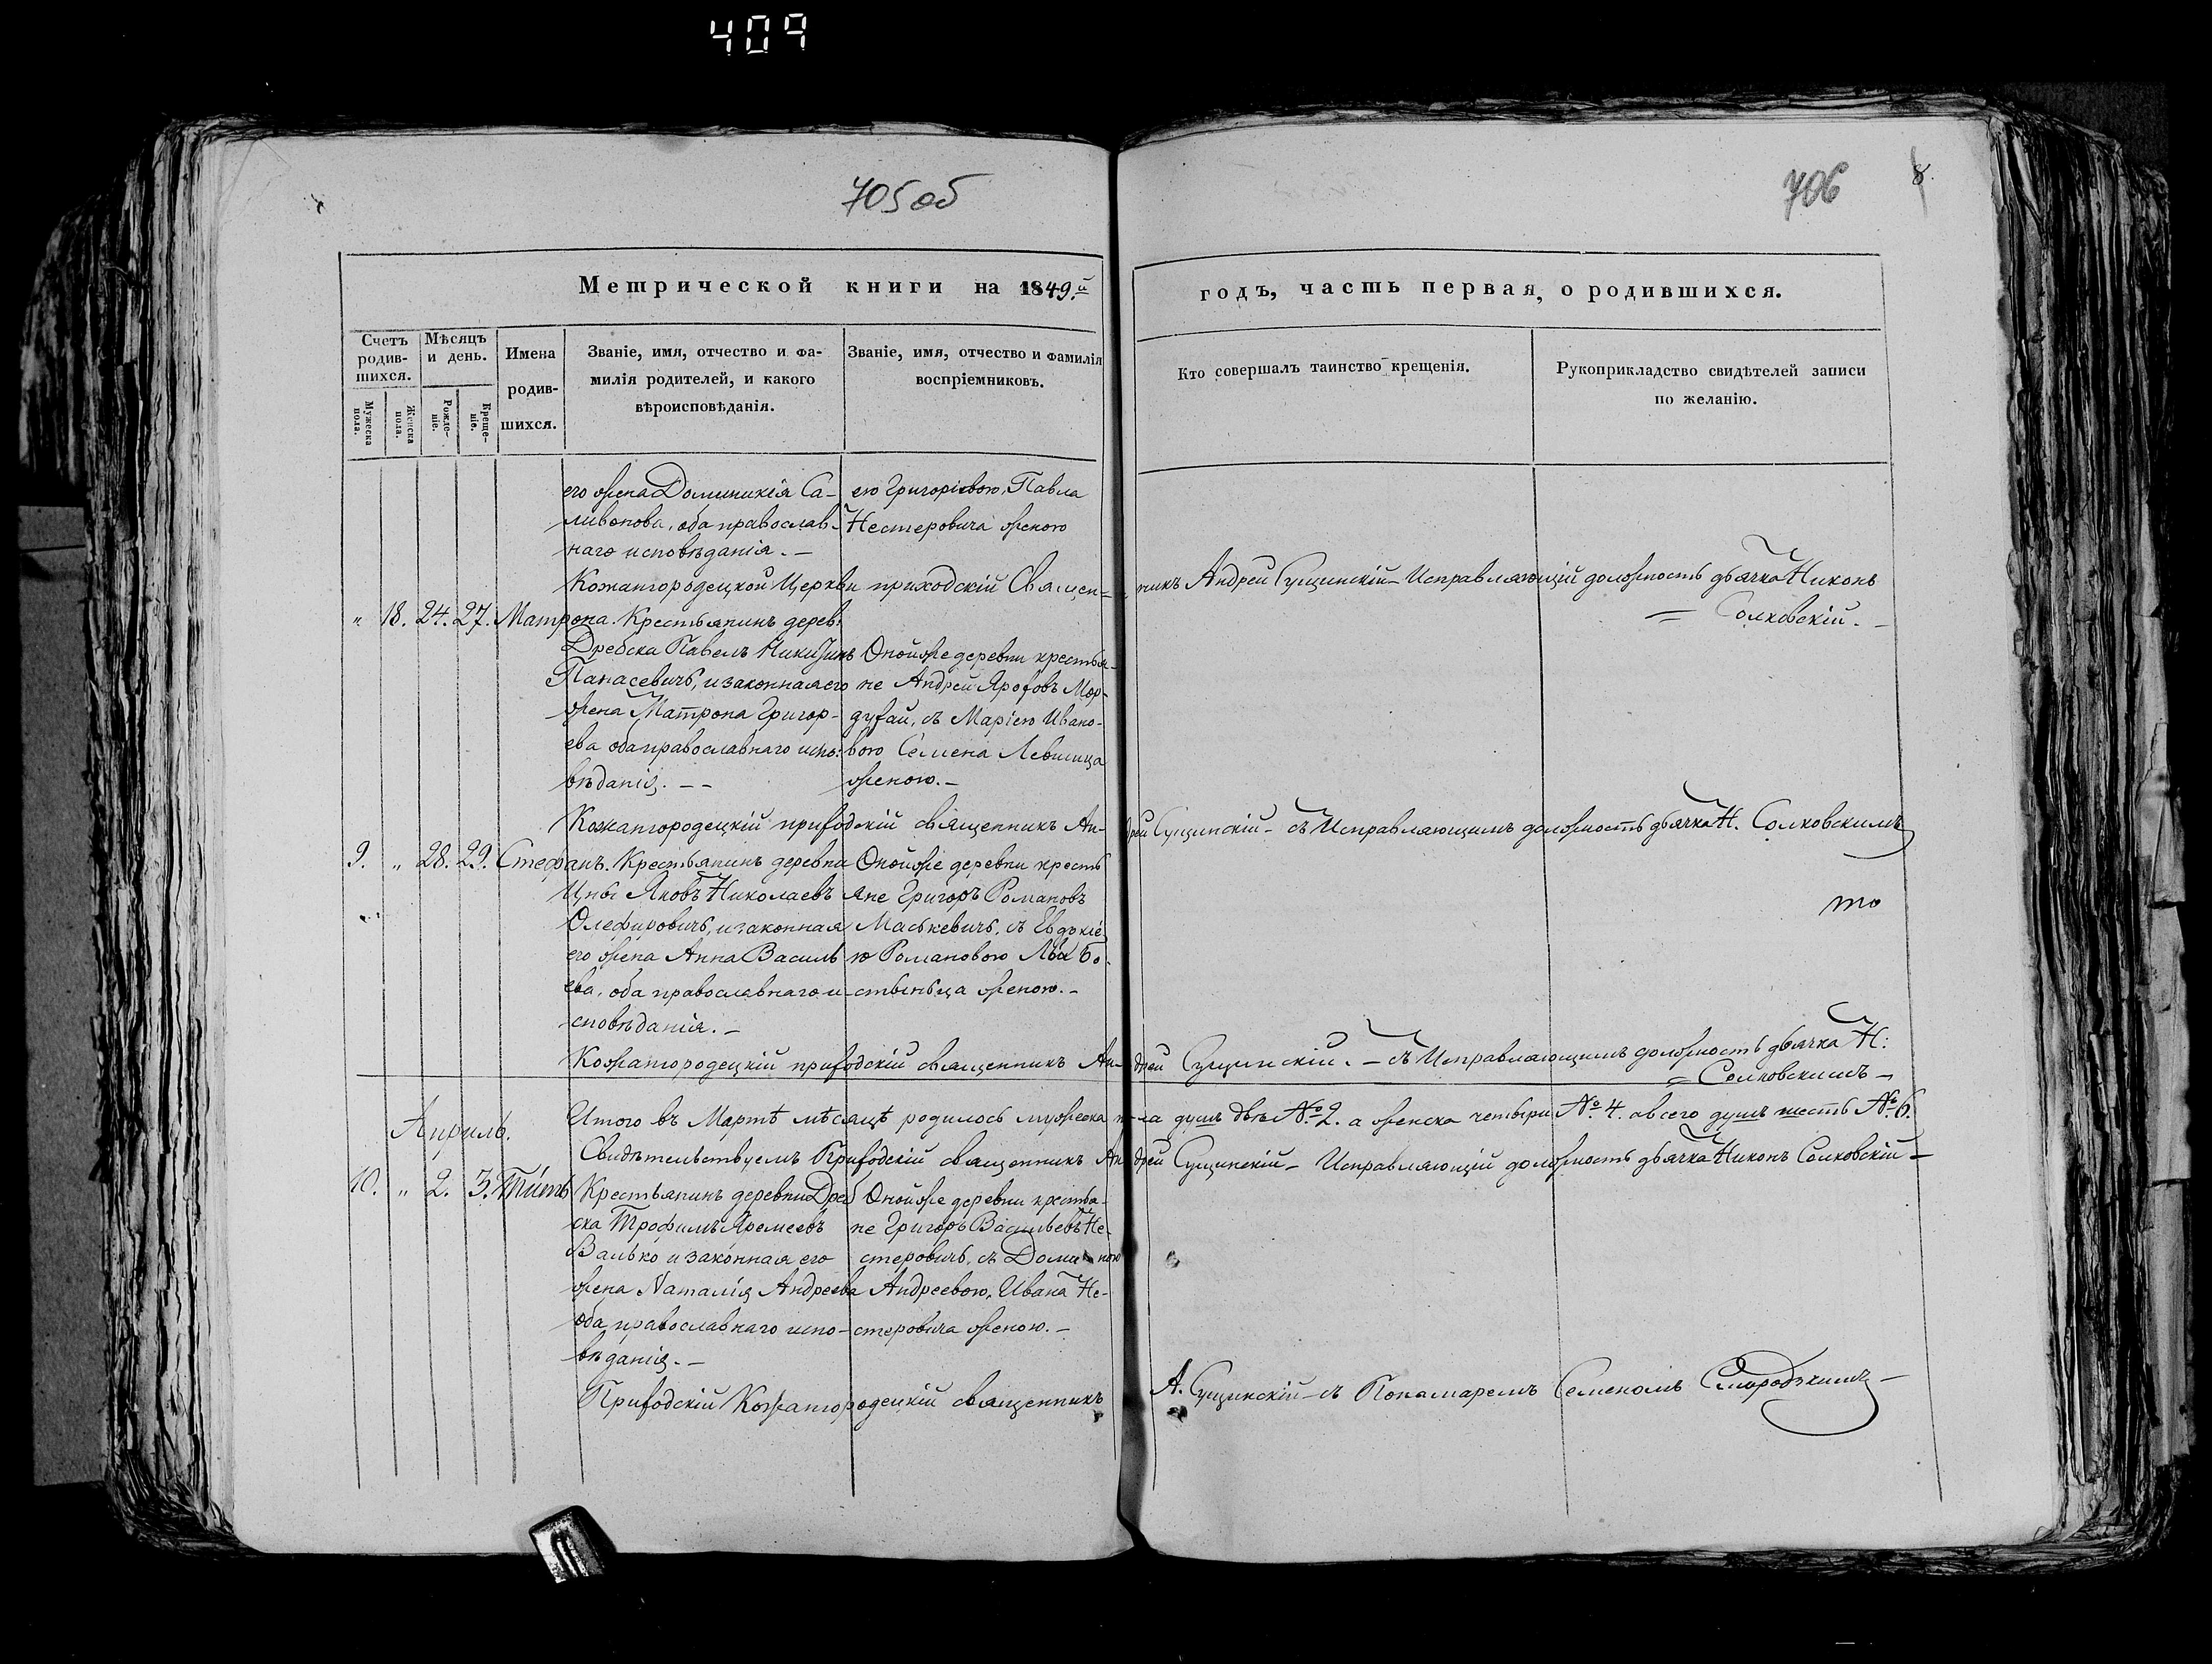 409
705 об
706
8.
Метрической книги на 1849.й
годъ, часть первая, о родившихся.
Счетъ родив-шихся.
Мужеска пола.
Женска пола.
Мѣсяцъ и день.
Рожде-ніе.
Креще-ніе.
Имена родив-шихся.
Званіе, имя, отчество и фа-
милія родителей, и какого
вѣроисповѣданія.
Званіе, имя, отчество и фамилія
воспріемниковъ.
Кто совершалъ таинство крещенія.
Рукоприкладство свидѣтелей записи
по желанію.
его жена Доминикія Са-
ливонова, оба православ-
наго исповѣданія. —
ею Григоріевою, Павла
Нестеровича женою
Кожангородецкой Церкви приходскій Священ-никъ Андрей Сущинскій – Исправляющій должность дьячка Никонъ
= Солковскій. –
" 18. 24. 27. Матрона. Крестьянинъ дерев:
Дребска Павелъ Никитинъ
Панасевичъ, и законная его
жена Матрона Григор-
ева оба православнаго испо:
вѣданія. – –
Онойже деревни крестья-
не Андрей Ярофовъ Мор-
духай, съ Маріею Ивано-
вою Семена Левшица
женою. –
Кожангородецкій приходскій священникъ Ан-дрей Сущинскій – съ Исправляющимъ должность дьячка Н. Солковскимъ
9. " 28. 29. Стефанъ. Крестьянинъ деревни
Цны Яковъ Николаевъ
Олефировичъ, и законная
его жена Анна Василь
ева, оба православнаго и-
сповѣданія. –
Онойже деревни кресть
яне Григоръ Романовъ
Маськевичъ, съ Евдокіе
ю Романовою Льва Бо-
стыньца женою. –
то
Кожангородецкій приходскій священникъ Ан-дрей Сущинскій. – съ Исправляющимъ должность дьячка Н:
= Солковскимъ –
Апрѣль.
Итого въ Мартѣ мѣсяцѣ родилось мужеска по-ла душъ двѣ № 2. а женска четыри № 4. авсего душъ шесть № 6.
Свидѣтельствуемъ Приходскій священникъ Ан-дрей Сущинскій – Исправляющій должность дьячка Никонъ Солковскій –
10. " 2. 3. Титъ Крестьянинъ деревни Дреб
ска Трофимъ Яремеевъ
Валько и законная его
жена Наталія Андреева
оба православнаго испо-
вѣданія. –
Онойже деревни крестья-
не Григоръ Васильевъ Не-
стеровичъ, съ Домнною
Андреевою, Ивана Не-
стеровича женою. –
Приходскій Кожангородецкій священникъ А. Сущинскій – съ Понамаремъ Семеномъ Смородскимъ –